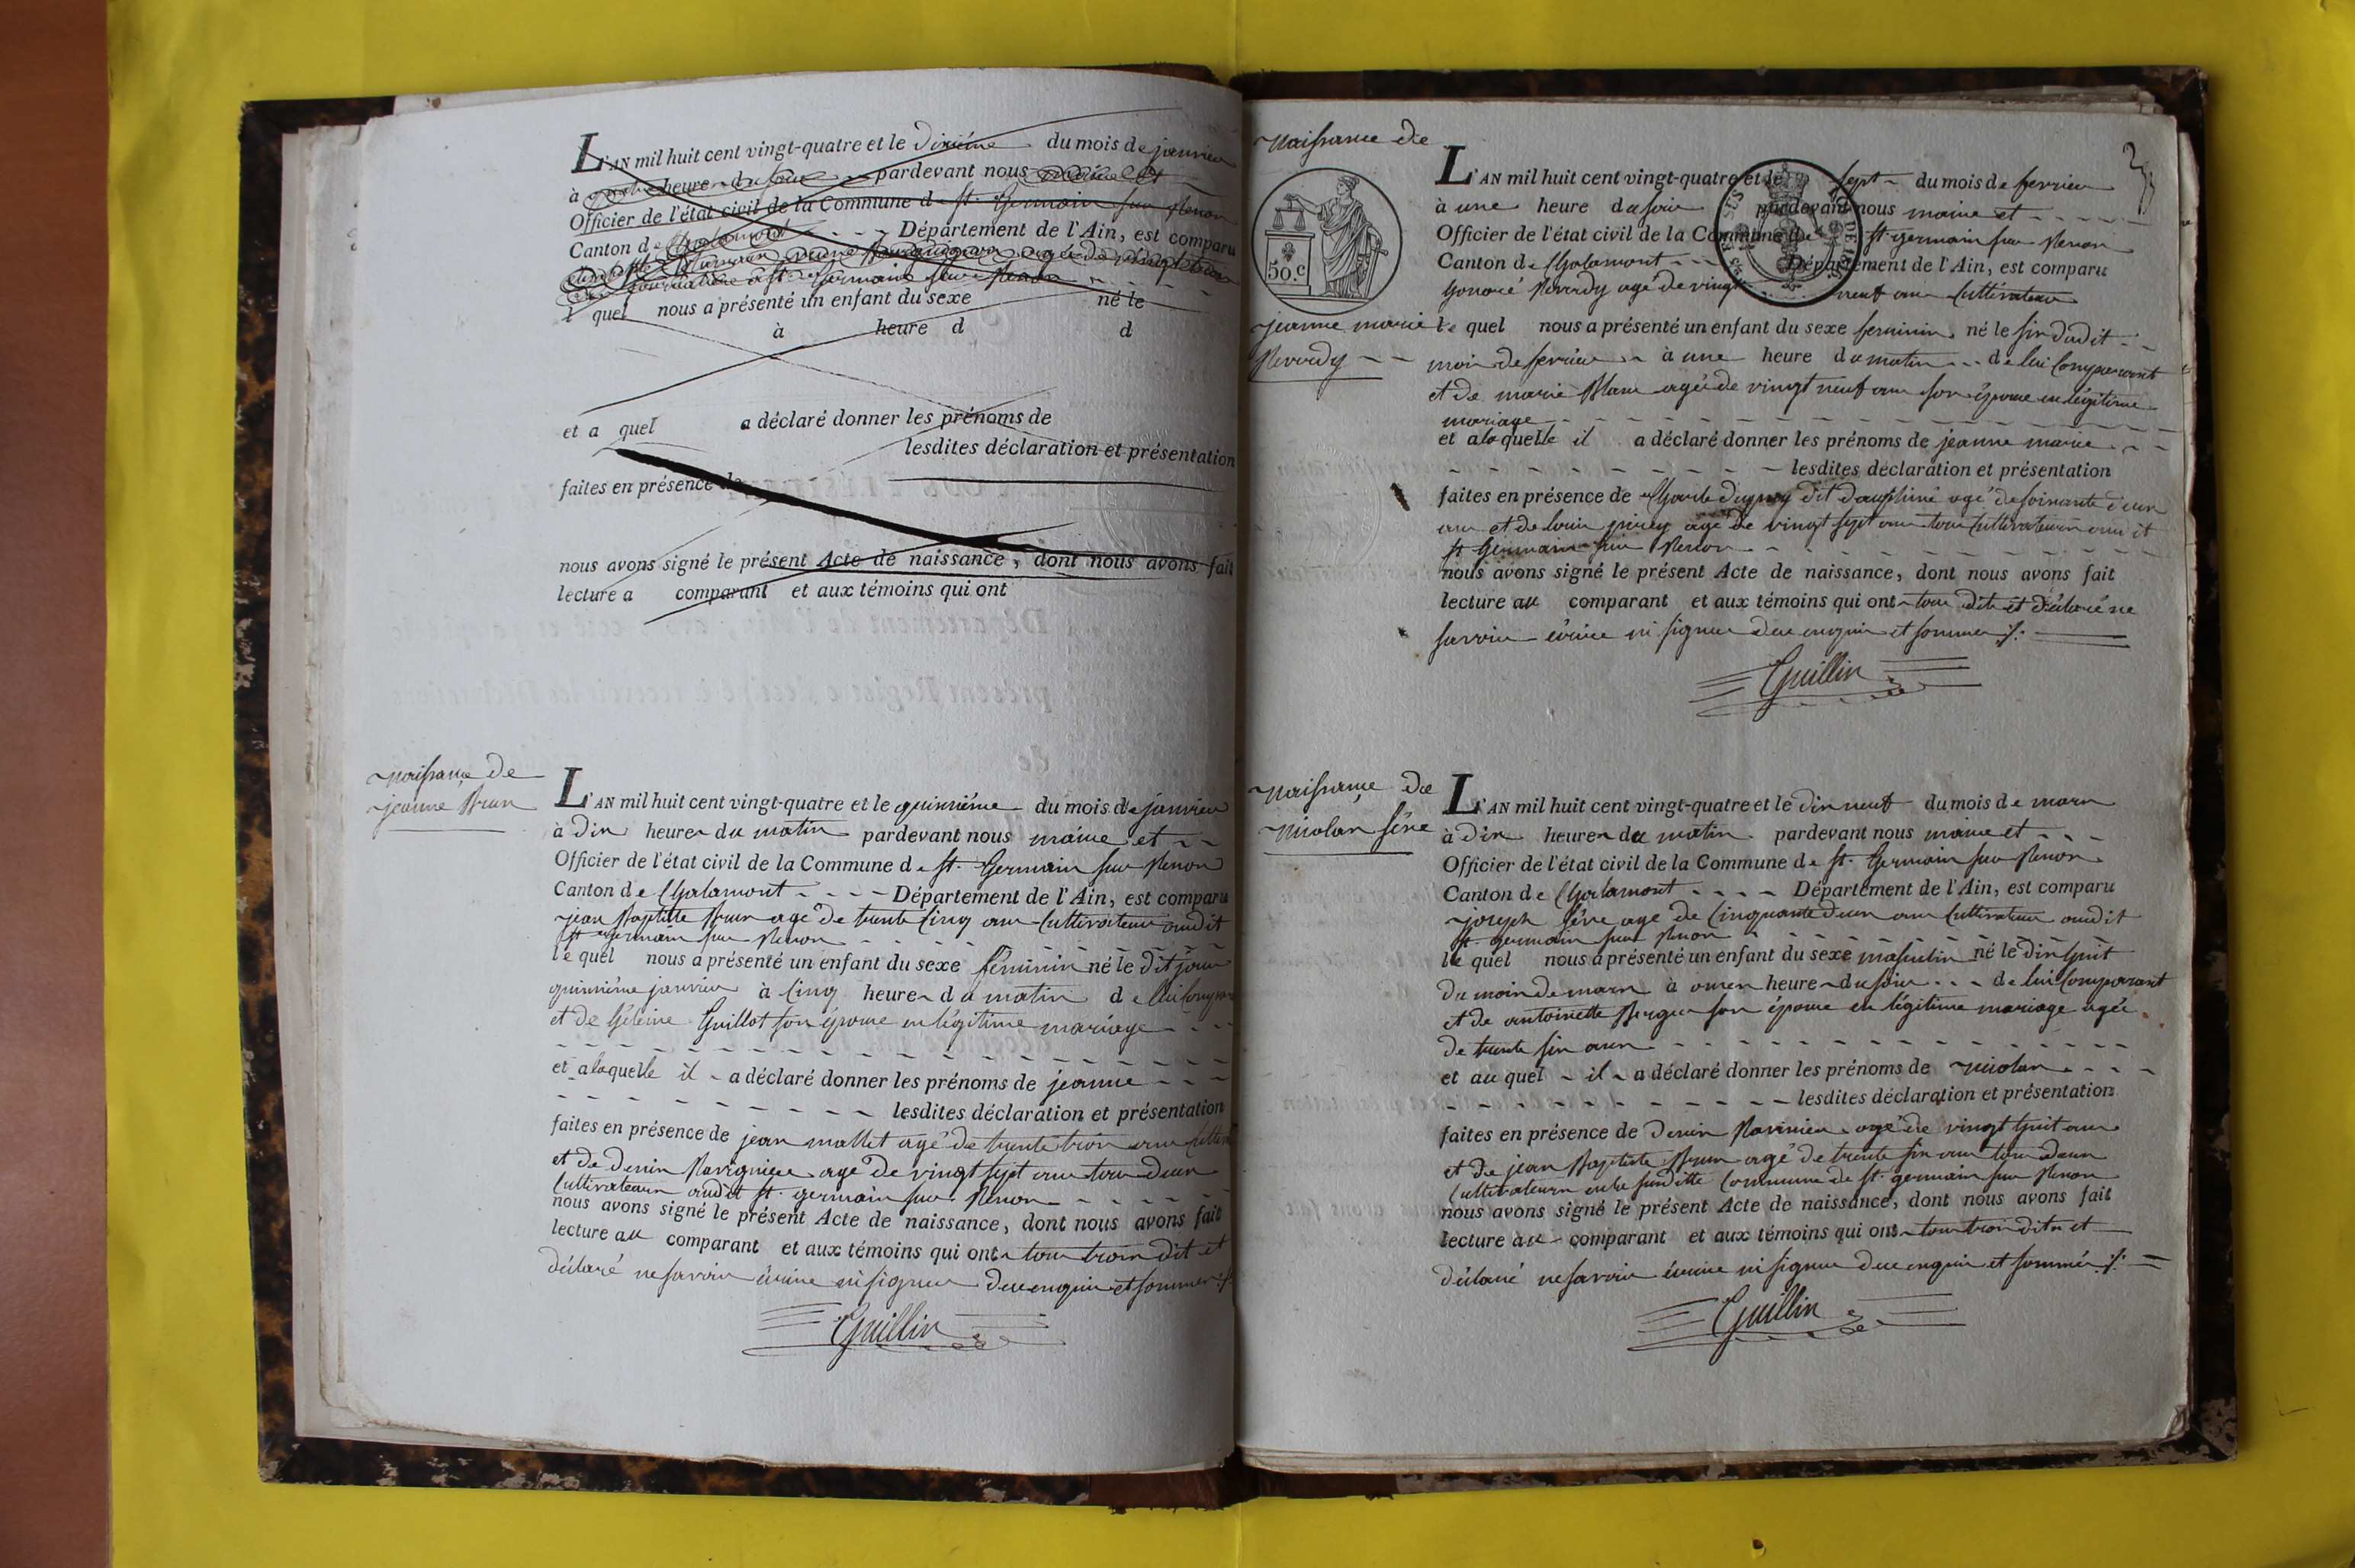 L'AN mil huit cent vingt-quatre et le Dixiéme du mois de janvier
à heures du soir pardevant nous maire et
Officier de l'état civil de la Commune de St. Germain sur Renon
Canton de Chalamont - - - Département de l'Ain, est comparu
à St. Germain sur Renon
l quel nous a présenté un enfant du sexe né le
à heure d d
et a quel a déclaré donner les prénoms de
lesdites déclaration et présentation
faites en présence de
nous avons signé le présent Acte de naissance, dont nous avons fait
lecture a comparant et aux témoins qui ont
naissance de
jeanne Brun
L'AN mil huit cent vingt-quatre et le quinziéme du mois de janvier
à dix heures du matin pardevant nous maire et - -
Officier de l'état civil de la Commune de St. Germain sur Renon
Canton de Chalamont - - - - Département de l'Ain, est comparu
jean Baptiste Brun agé de trente cinq ans Cultivateur audit
St. germain sur Renon
le quel nous a présenté un enfant du sexe féminin né le dit jour
quinziéme janvier à cinq heures du matin de lui
et de héleine Guillot son épouse en légitime mariage - - -
et a laquelle il - a déclaré donner les prénoms de jeanne - - -
lesdites déclaration et présentation
faites en présence de jean mallet agé de trente trois ans
et de Denis agé de vingt sept ans tous deux
Cultivateurs audit St. germain sur Renon
nous avons signé le présent Acte de naissance, dont nous avons fait
lecture au comparant et aux témoins qui ont tous trois dit et
déclaré ne savoir écrire ni signer de ce enquis et sommés ./.
Guillin
naissance de
50.c
jeanne marie
3
L'AN mil huit cent vingt-quatre et le sept du mois de fevrier
à une heure du soir pardevant nous maire et - - - -
Officier de l'état civil de la Commune de St. germain sur Renon
Canton de Chalamont - - Département de l'Ain, est comparu
honoré agé de vingt neuf ans Cultivateur
le quel nous a présenté un enfant du sexe feminin né le six dudit - -
mois de fevrier à une heure du matin - - de lui Comparant
et de marie Blanc agée de vingt neuf ans son épouse en légitime
mariage
et a laquelle il a déclaré donner les prénoms de jeanne marie - - -
lesdites déclaration et présentation
faites en présence de dit dauphiné agé de soixante deux
ans et de louis agé de vingt sept ans tous Cultivateurs audit
St. Germain sur Renon
nous avons signé le présent Acte de naissance, dont nous avons fait
lecture au comparant et aux témoins qui ont tous dit et déclaré ne
savoir écrire ni signer de ce enquis et sommés ./.
Guillin
naissance de
nicolas Séve
L'AN mil huit cent vingt-quatre et le dix neuf du mois de mars
à dix heures du matin pardevant nous maire et - - -
Officier de l'état civil de la Commune de St. Germain sur Renon
Canton de Chalamont - - - - Département de l'Ain, est comparu
joseph Séve agé de Cinquante deux ans Cultivateur audit
St. germain sur Renon
le quel nous a présenté un enfant du sexe masculin né le dix huit
du mois de mars à onze heures du soir - - - de lui Comparant
et de antoinette Berger son épouse en légitime mariage agée
de trente six ans
et au quel - il - a déclaré donner les prénoms de nicolas - - - -
lesdites déclaration et présentation
faites en présence de Denis agé de vingt huit ans
et de jean Baptiste Brun agé de trente six ans tous deux
Cultivateurs en la susditte Commune de St. germain sur Renon
nous avons signé le présent Acte de naissance, dont nous avons fait
lecture au comparant et aux témoins qui ont tous trois dits et
déclaré ne savoir écrire ni signer de ce enquis et sommés ./.
Guillin